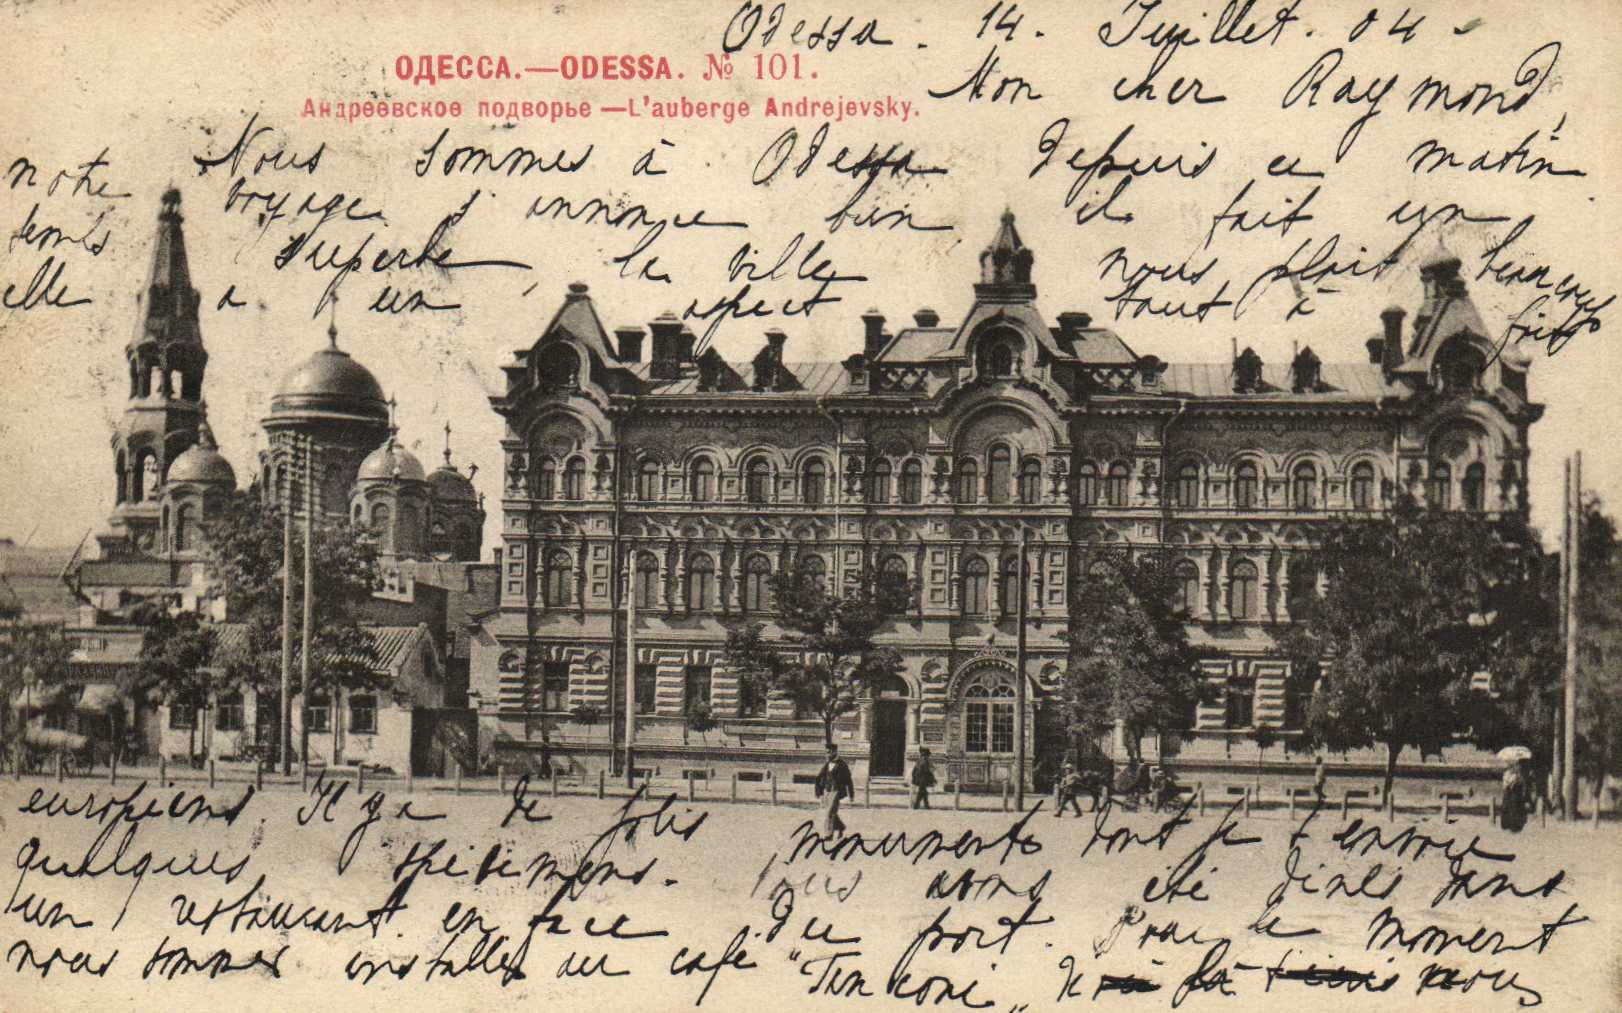 Odessa. 14. Juillet. 04.
ОДЕССА.—ODESSA. № 101.
Андреевское подворье —L'auberge Andrejevsky.
Mon cher Raymond,
Nous sommes à Odessa depuis ce matin
notre voyage s'annonce bien il fait un
temps superbe, la ville nous plait beaucoup
elle a un aspect tout à fait
européens. Il y a de jolis monuments dont je t'envoie
quelques spécimens. Nous avons été dinés dans
un restaurant en face du port. Pour le moment
nous sommes installés au café "Fanconi" nous